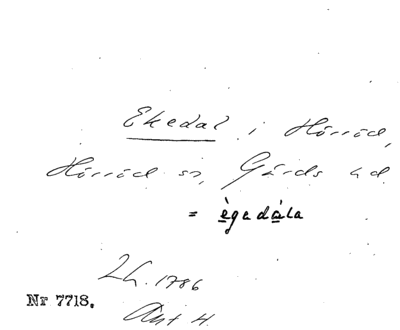 Ekedal i Hörröd,
Hörröd sn, Gärds hd.
= ègedàla
Lh. 1786
Nr 7718.
Avt H.